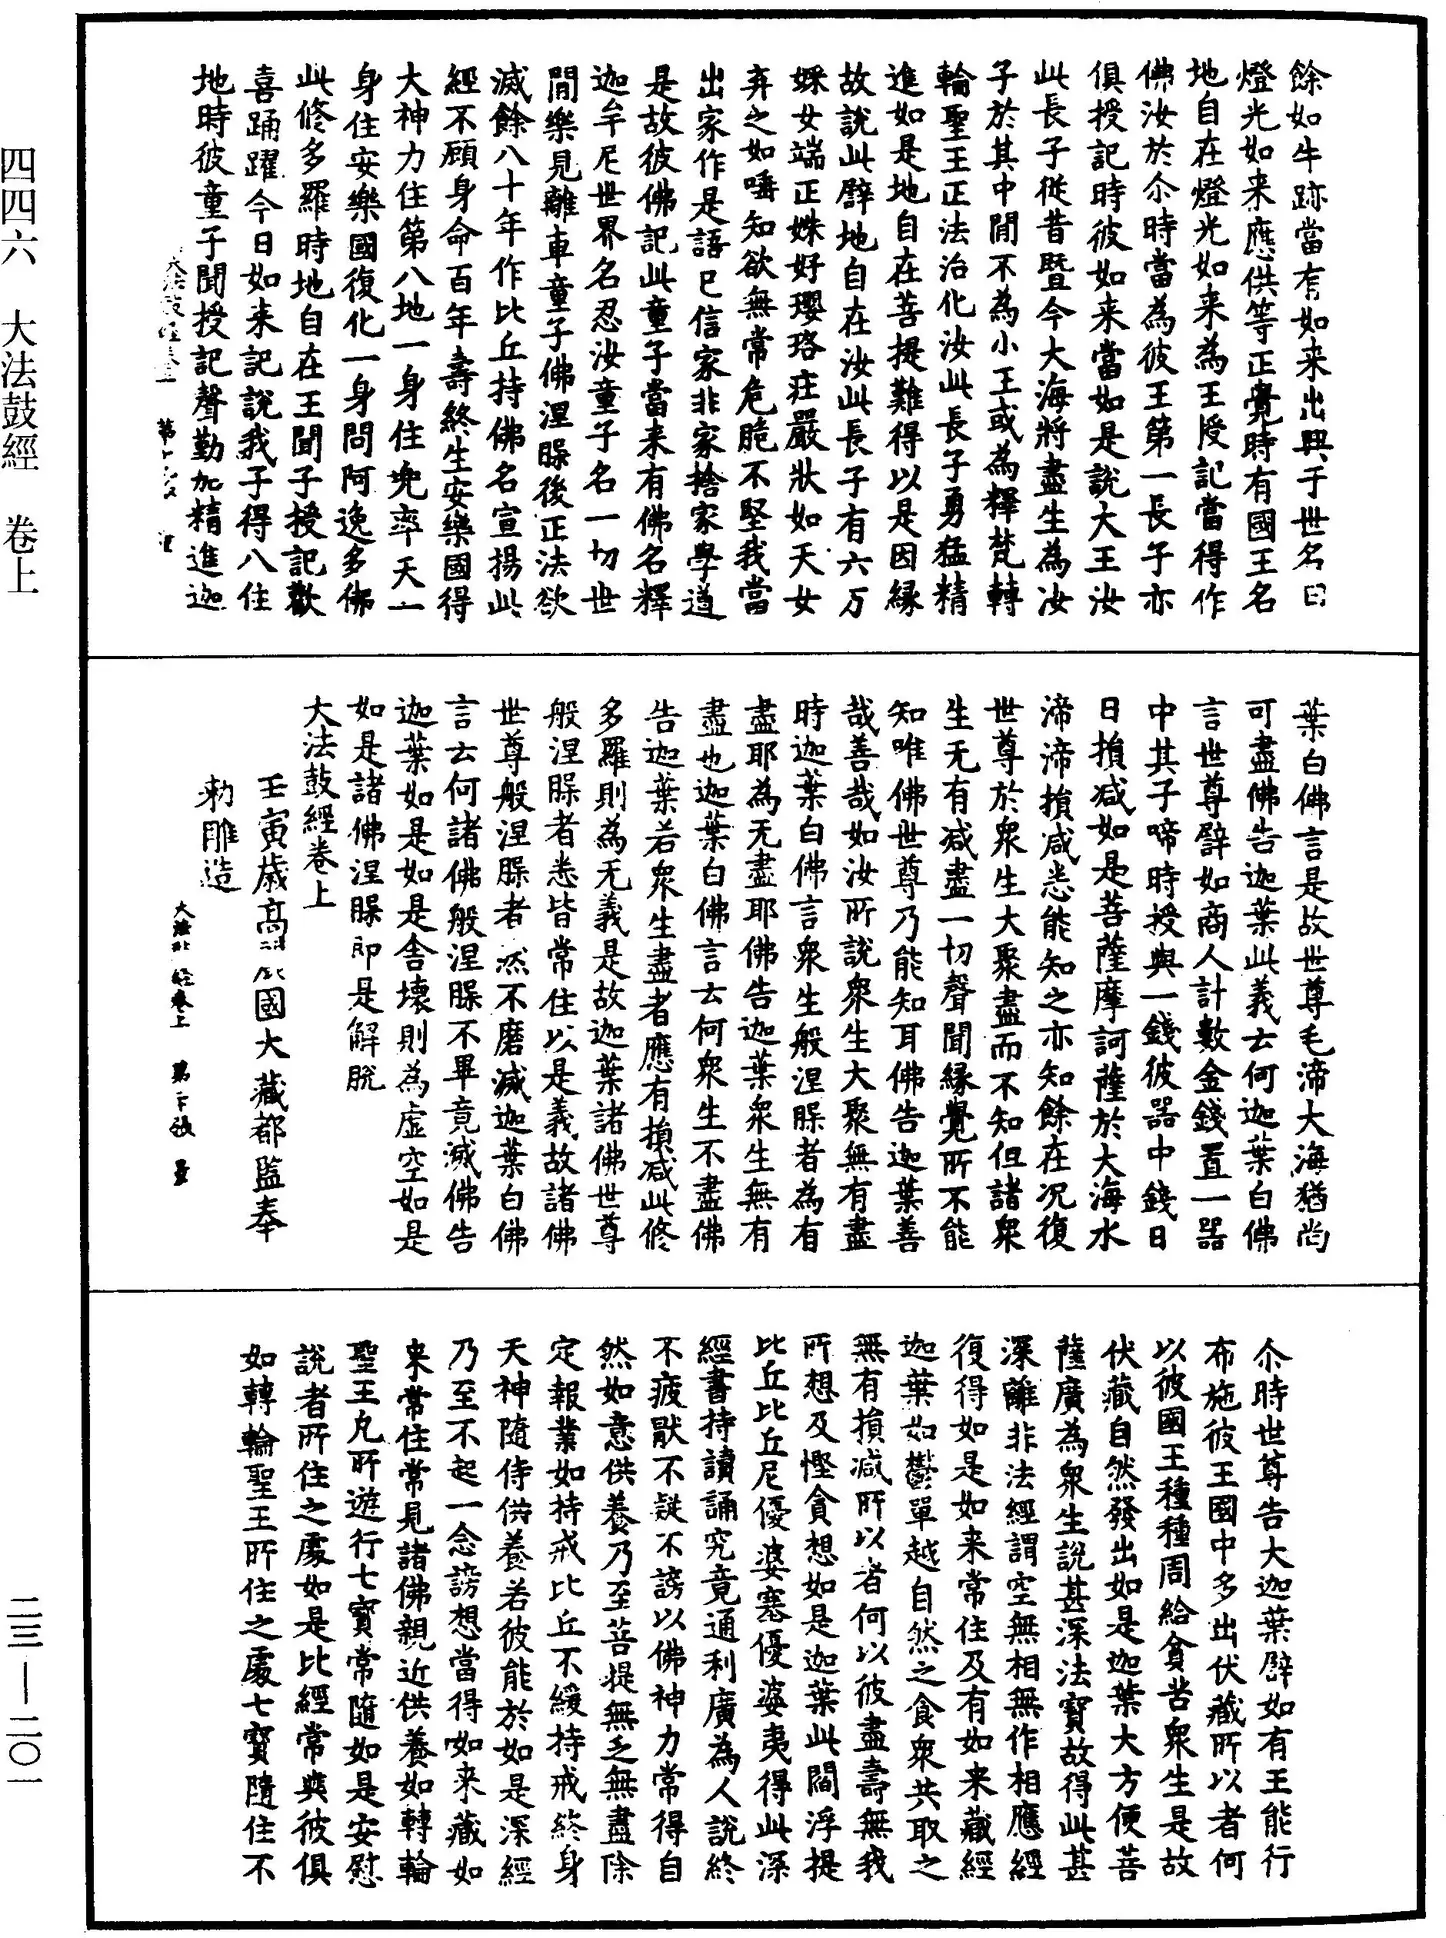 四四六　大法鼓經　卷上
餘如牛跡當有如来出興于世名曰
燈光如来應供等正覺時有國王名
地自在燈光如来為王授記當得作
佛汝於尒時當為彼王第一長子亦
俱授記時彼如来當如是說大王汝
此長子從昔暨今大海將盡生為汝
子於其中閒不為小王或為釋梵轉
輪聖王正法治化汝此長子勇猛精
進如是地自在菩提難得以是因縁
故說此譬地自在汝此長子有六万
婇女端正姝好瓔珞莊嚴狀如天女
弃之如唾知欲無常危脆不堅我當
出家作是語已信家非家捨家學道
是故彼佛記此童子當来有佛名釋
迦牟尼世界名忍汝童子名一切世
閒樂見離車童子佛涅槃後正法欲
滅餘八十年作比丘持佛名宣揚此
經不顧身命百年壽終生安樂國得
大神力住第八地一身住兜率天一
身住安樂國復化一身問阿逸多佛
此修多羅時地自在王聞子授記歡
喜踊躍今日如来記說我子得八住
地時彼童子聞授記聲勤加精進迦
葉白佛言是故世尊毛渧大海猶尚
可盡佛告迦葉此義云何迦葉白佛
言世尊譬如商人計數金錢置一器
中其子啼時授與一錢彼器中錢日
日損减如是菩薩摩訶薩於大海水
渧渧損减悉能知之亦知餘在况復
世尊於衆生大聚盡而不知但諸衆
生无有减盡一切聲聞縁覺所不能
知唯佛世尊乃能知耳佛告迦葉善
哉善哉如汝所說衆生大聚無有盡
時迦葉白佛言衆生般涅槃者為有
盡耶為无盡耶佛告迦葉衆生無有
盡也迦葉白佛言云何衆生不盡佛
告迦葉若衆生盡者應有損减此修
多羅則為无義是故迦葉諸佛世尊
般涅槃者悉皆常住以是義故諸佛
世尊般涅槃者然不磨滅迦葉白佛
言云何諸佛般涅槃不畢竟滅佛告
迦葉如是如是舍壞則為虛空如是
如是諸佛涅槃即是解脫
大法鼓經卷上
壬寅歲高麗國大藏都監奉
勑雕造
尒時世尊告大迦葉譬如有王能行
布施彼王國中多出伏藏所以者何
以彼國王種種周給貪苦衆生是故
伏藏自然發出如是迦葉大方便菩
薩廣為衆生說甚深法寶故得此甚
深離非法經謂空無相無作相應經
復得如是如来常住及有如来藏經
迦葉如鬱單越自然之食衆共取之
無有損减所以者何以彼盡壽無我
所想及慳貪想如是迦葉此閻浮提
比丘比丘尼優婆塞優婆夷得此深
經書持讀誦究竟通利廣為人說終
不疲猒不疑不謗以佛神力常得自
然如意供養乃至菩提無乏無盡除
定報業如持戒比丘不緩持戒終身
天神隨侍供養若彼能於如是深經
乃至不起一念謗想當得如来藏如
来常住常見諸佛親近供養如轉輪
聖王凡所遊行七寶常隨如是安慰
說者所住之處如是比經常與彼俱
如轉輪聖王所住之處七寶隨住不
二三—二〇一